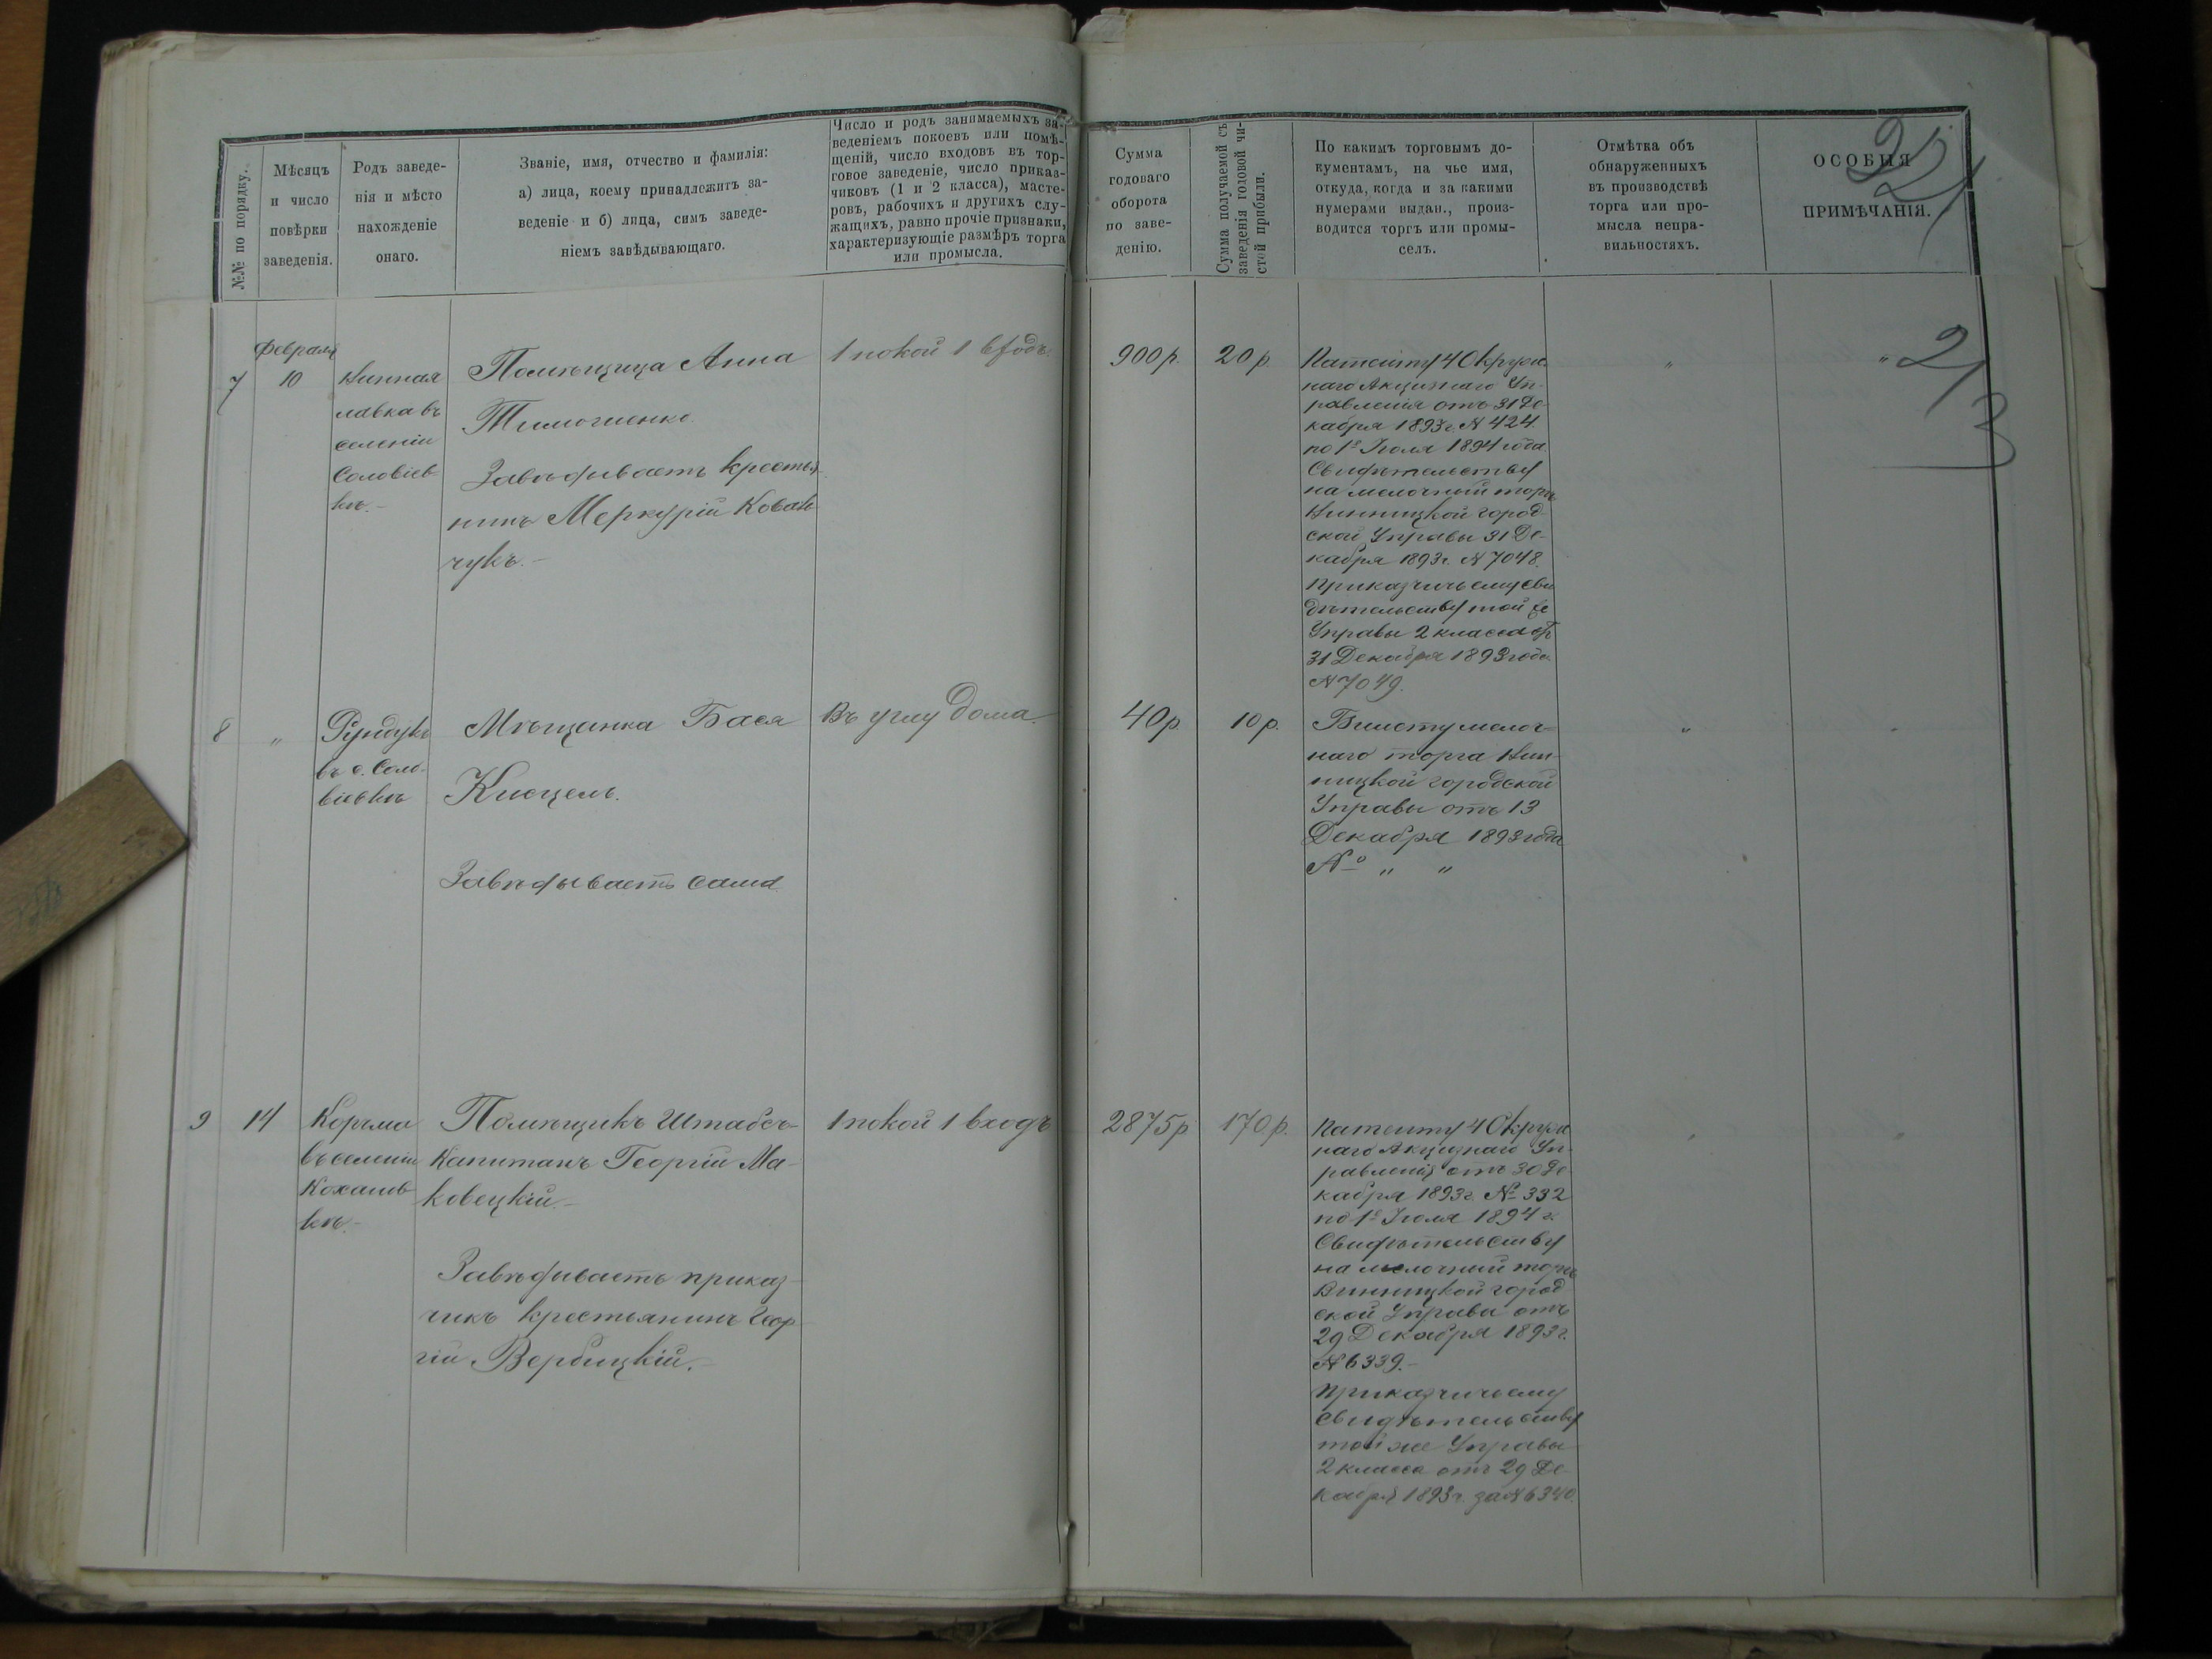 №№ по порядку.
Мѣсяцъ
и число
повѣрки
заведенія.
Родъ заведе-
нія и мѣсто
нахожденіе
онаго.
Званіе, имя, отчество и фамилія:
а) лица, коему принадлежитъ за-
веденіе и б) лица, симъ заведе-
ніемъ завѣдывающаго.
Число и родъ занимаемыхъ за-
веденіемъ покоевъ или помѣ-
щеній, число входовъ въ тор-
говое заведеніе, число приказ-
чиковъ (1 и 2 класса), масте-
ровъ, рабочихъ и другихъ слу-
жащихъ, равно прочіе признаки,
характеризующіе размѣръ торга
или промысла.
Сумма
годоваго
оборота
по заве-
денію.
Сумма получаемой съ
заведенія годовой чи-
стой прибыли.
По какимъ торговымъ до-
кументамъ, на чье имя,
откуда, когда и за какими
нумерами выдан., произ-
водится торгъ или промы-
селъ.
Отмѣтка объ
обнаруженныхъ
въ производствѣ
торга или про-
мысла непра-
вильностяхъ.
ОСОБЫЯ
ПРИМѢЧАНІЯ.
213
7
Февраля
10
Винная
лавка въ
селеніи
Соловіев-
кѣ.-
Помѣщица Анна
Тимошенко.
Завѣдываетъ крестья-
нинъ Меркурій Коваль-
чукъ.-
1 покой 1 входъ
900 р.
20 р.
Патенту 4 Окруж-
наго Акцизнаго Уп-
равленія отъ 31 Де-
кабря 1893 г. № 424.
по 1е Іюля 1894 года.
Свидѣтельству
на мелочный торгъ
Винницкой город-
ской Управы 31 Де-
кабря 1893 г. № 7048.
Приказчичьему сви
дѣтельству той же
Управы 2 класса отъ
31 Декабря 1893 года
№ 7049.
"
"
8
"
Рундукъ
въ с. Соло-
віевкѣ
Мѣщанка Бася
Кисцель.
Завѣдываетъ сама.
Въ углу дома.-
40 р.
10 р.
Билету мелоч-
наго торга Вин-
ницкой городской
Управы отъ 13
Декабря 1893 года
№ " "
"
"
9
14
Корчма
въ селеніи
Кохановкѣ.-
Помѣщикъ Штабсъ-
Капитанъ Георгій Ма-
ковецкій.-
Завѣдываетъ приказ-
чикъ крестьянинъ Геор
гій Вербицкій.-
1 покой 1 входъ
2875 р.
170 р.
Патенту 4 Окруж
наго Акцизнаго Уп-
равленія отъ 30 Де-
кабря 1893 г. № 332
по 1е Іюля 1894 г.
Свидѣтельству
на мелочный торгъ
Винницкой город
ской Управы отъ
29 Декабря 1893 г.
№ 6339.-
Приказчичьему
Свидѣтельству
той же Управы
2 класса отъ 29 Де-
кабря 1893 г. за № 6340.
"
"